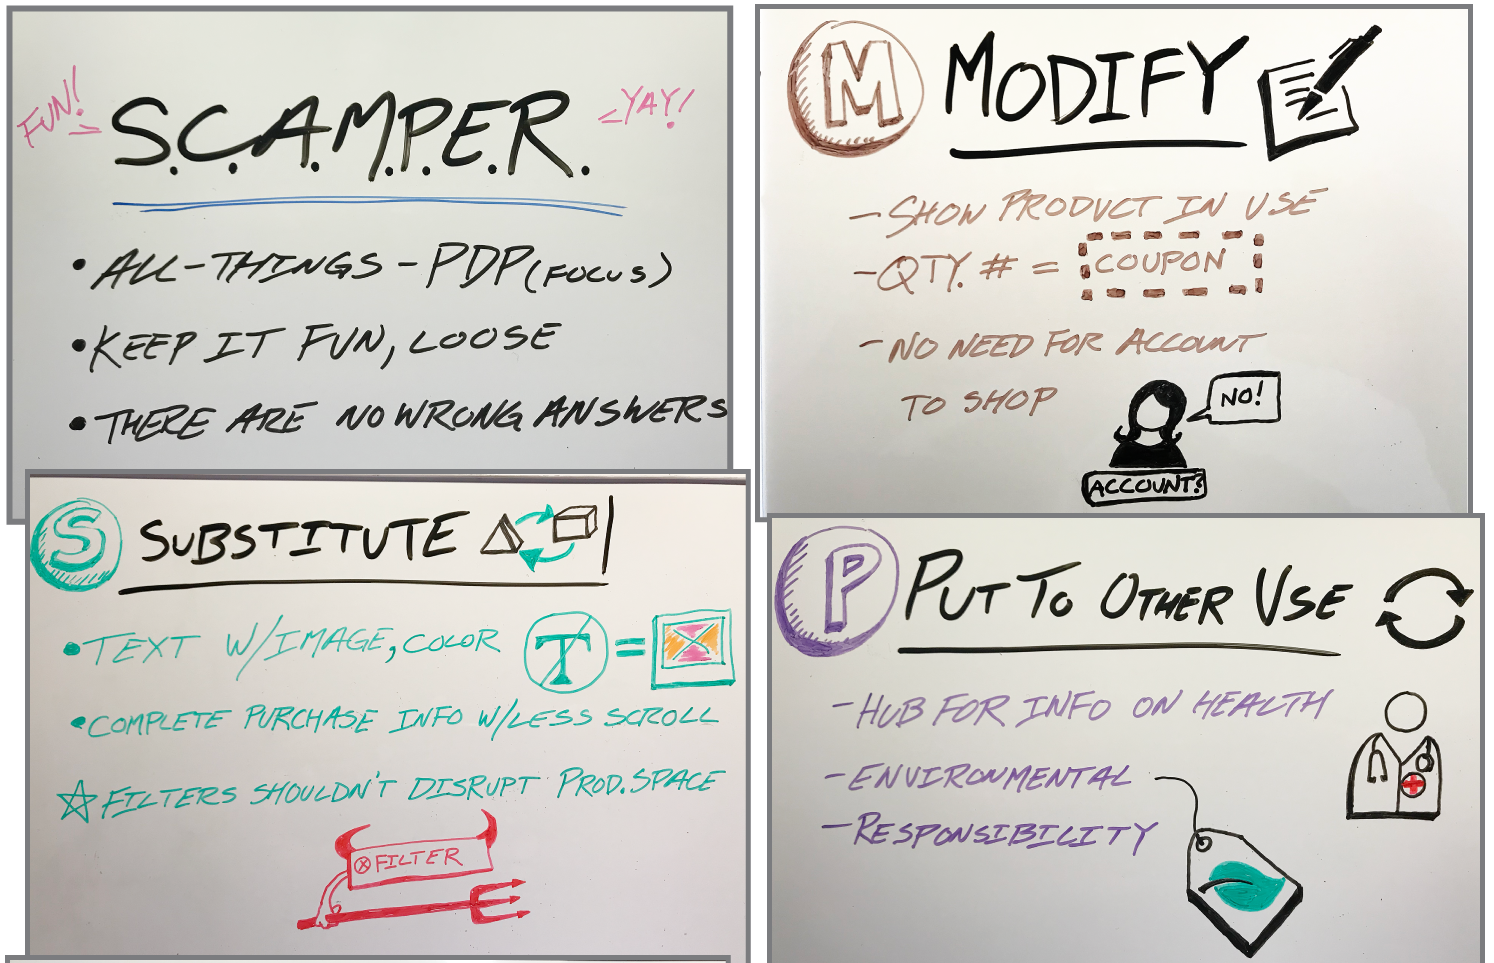 FUN!
S.C.A.M.P.E.R.
YAY!
• ALL-THINGS-PDP (FOCUS)
• KEEP IT FUN, LOOSE
• THERE ARE NO WRONG ANSWERS
S SUBSTITUTE
• TEXT W/IMAGE, COLOR T =
• COMPLETE PURCHASE INFO W/LESS SCROLL
☆ FILTERS SHOULDN'T DISRUPT PROD. SPACE
ⓧ FILTER
M MODIFY
- SHOW PRODUCT IN USE
- QTY. # = COUPON
- NO NEED FOR ACCOUNT
TO SHOP
NO!
ACCOUNT?
P PUT TO OTHER USE
- HUB FOR INFO ON HEALTH
- ENVIRONMENTAL
- RESPONSIBILITY